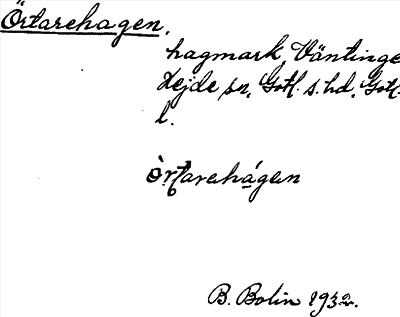 Örtarehagen.
hagmark, Väntinge
Hejde sn, Gotl. s. hd, Gotl.
l.
òrtarehágen
B. Bolin 1932.